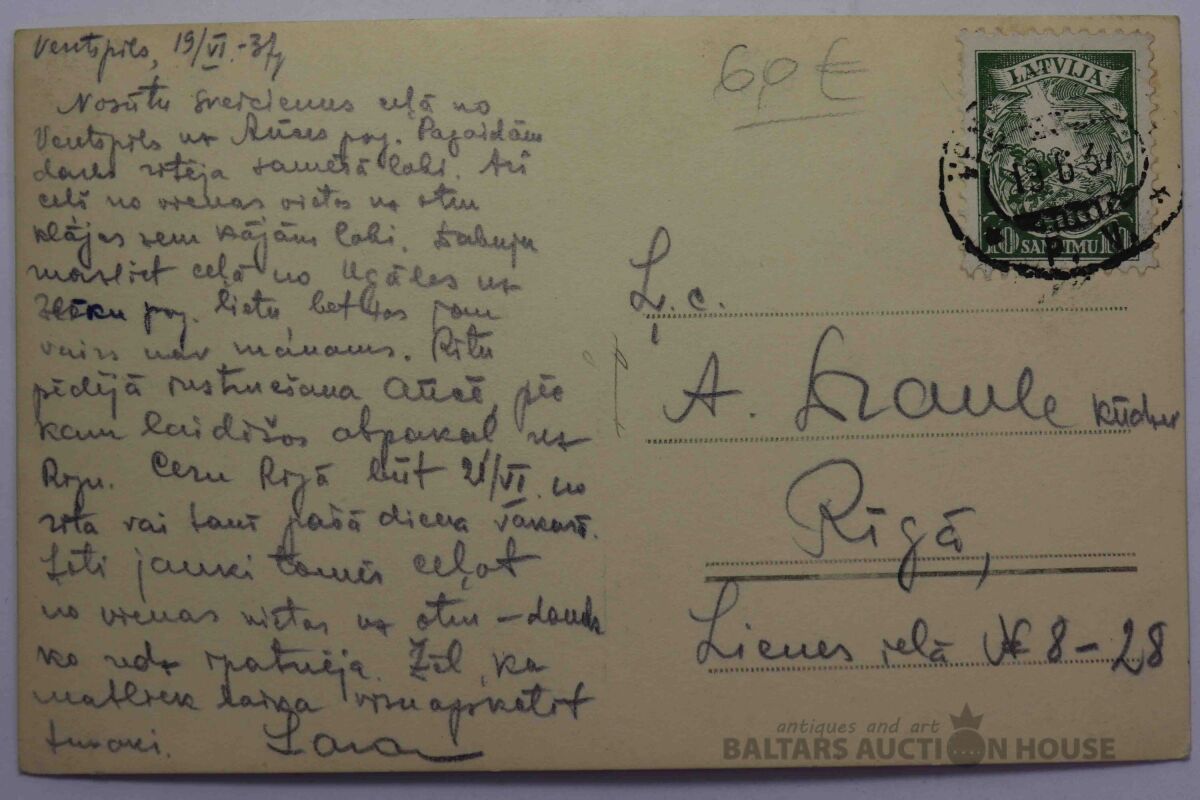 Ventspils, 19/VI.-37
Nosūtu sveicienus ceļā no
Ventspils uz Ances pag. Pagaidām
darbs ritēja samērā labi. Arī
ceļš no vienas vietas uz otru
klājas zem kājām labi. Dabuju
mazliet ceļā no Ugāles uz
Zlēku pag. lietu, bet tas jau
vairs nav mānams. Rītu
pēdējā Ancē, pēc
kam laidīšos atpakaļ uz
Rīgu. Ceru Rīgā būt 21/VI. no
rīta vai tanī pašā dienā vakarā.
Ļoti jauki tomēr ceļot
no vienas vietas uz otru – daudz
ko redz īpatnēja. Žēl, ka
matliek laika visu apskatīt
tuvāki.
60 €
LATVIJA
10 SANTIMU 10
19 6 37
Ļ. c.
A. Straule kundzei
Rīgā,
Lienes ielā № 8 – 28
antiques and art
BALTARS AUCTION HOUSE